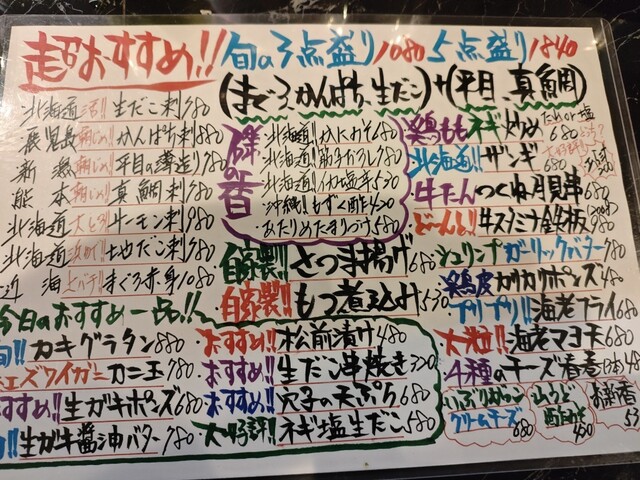 超おすすめ!!
旬の3点盛り1080 5点盛り1840
(まぐろ、かんぱち、生だこ)+(平目、真鯛)
北海道 生だこ刺780
鹿児島 朝〆!! かんぱち刺880
新潟 朝〆!! 平目の薄造り980
熊本 朝〆!! 真鯛刺780
北海道 大とろ!! サーモン刺980
北海道 地だこ刺780
近海 まぐろ赤身1080
北海道!! かにみそ680
北海道!! 筋子おろし780
北海道!! イカ塩辛530
沖縄!! もずく酢420
あたりめたまりづけ680
自家製!! さつま揚げ680
自家製!! もつ煮込み530
鶏もも ネギ炒め
たれor塩
680
北海道!! ザンギ
680
牛たん つくね月見串680
どーん!! 牛スタミナ鉄板980
シュリンプ ガーリックバター980
鶏皮 カリカリポンズ480
プリプリ!! 海老フライ680
大粒!! 海老マヨ天680
4種のチーズ春巻(2本)48
いぶりがっこ
クリームチーズ
680
450
お新香
今日のおすすめ一品!!
旬!! カキグラタン880
ズワイガニ カニ玉780
おすすめ!! 生ガキポンズ680
生ガキ醤油バター780
おすすめ!! 松前漬け480
おすすめ!! 生だこ串焼き320
おすすめ!! 穴子の天ぷら680
大好評!! ネギ塩生だこ680